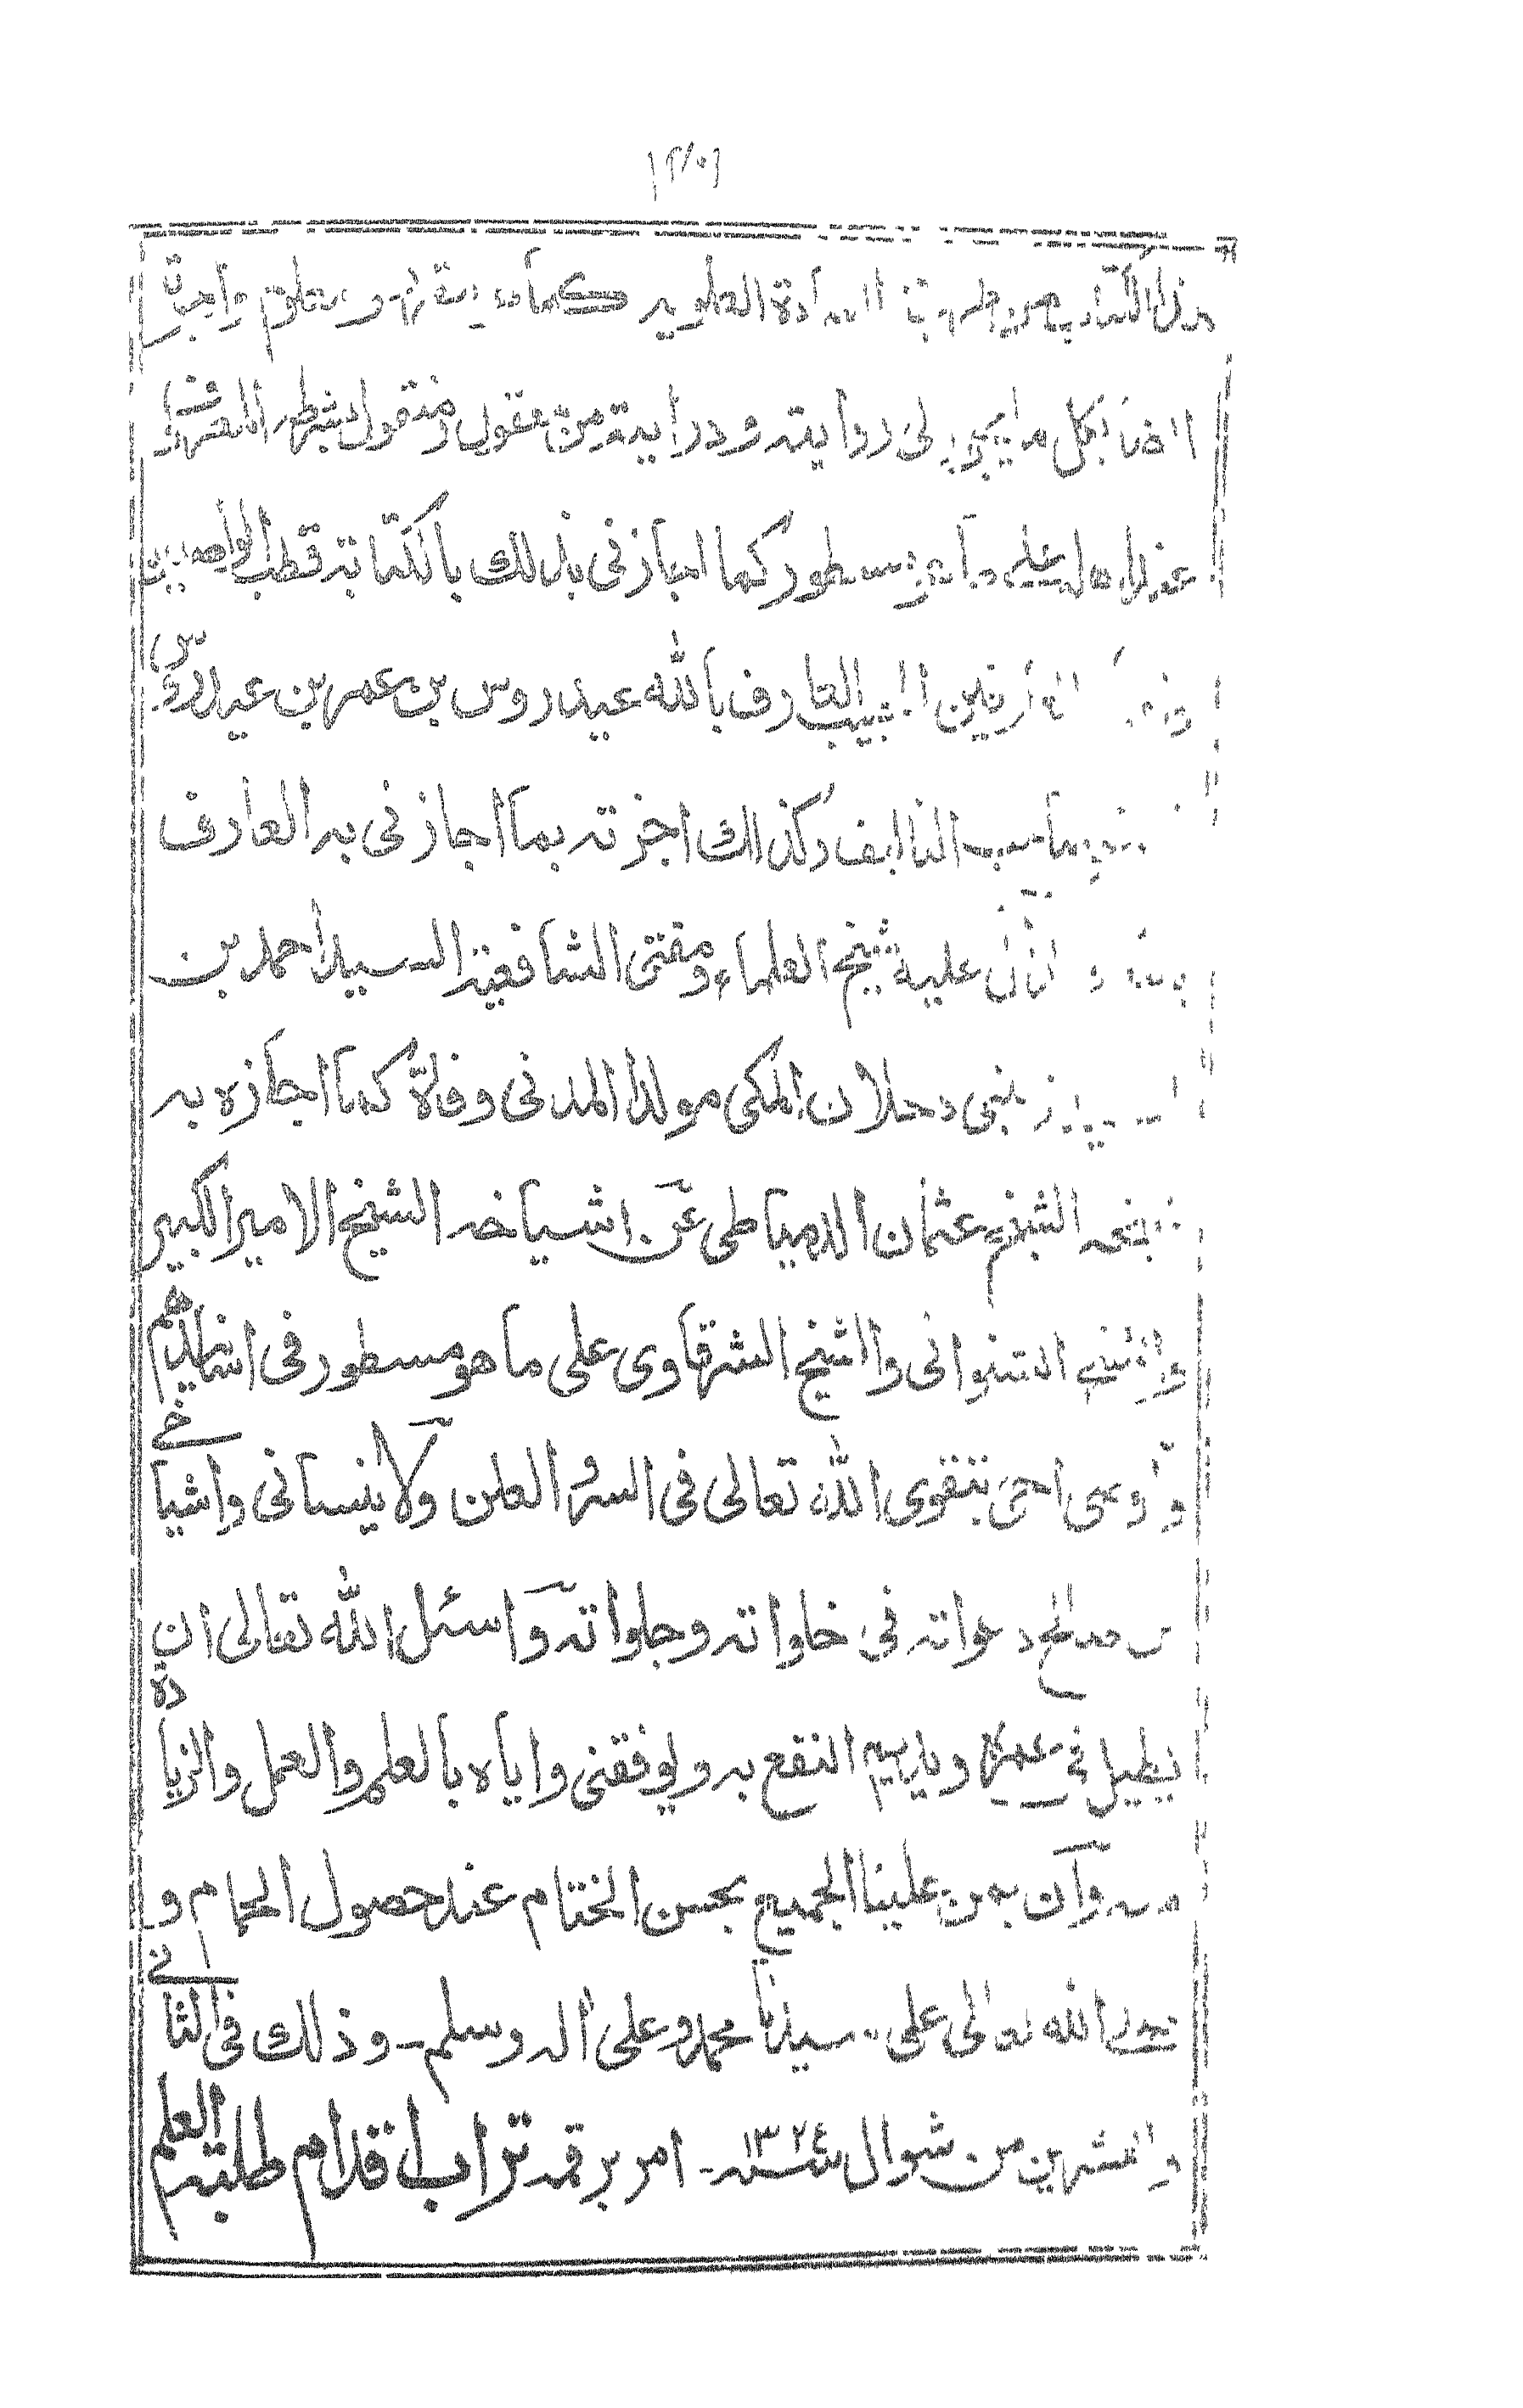 هذا الكتاب من طريقة السادة العلوية كما ويتعلق واجزته
ايضا بكل ما يجوز لي روايته ودراية من معقول ومنقول بشرطه المعتبر
عند الاهل على ما مسطور كما اجازني بذلك بالكتابة قطب الواصلين
العارفين الحبيب العارف بالله عيدروس بن عمر بن عيدروس
صاحب التاليف وكذلك اجزته بما اجازني به العارف
بالله والدال عليه شيخ العلماء ومفتى الشافعية السيد احمد بن
زيني دحلان المكي مولدا المدني وفاة كما اجازه به
شيخه الشيخ عثمان الدمياطي عن اشياخه الشيخ الامير الكبير
والشيخ الشنواني والشيخ الشرقاوى على ما هو مسطور في اسانيدهم
واوصى اخى بتقوى الله تعالى في السر والعلن ولا ينساني واشياخي
من صالح دعواته في خلواته وجلواته واسئل الله تعالى ان
يطيل في عمره ويديم النفع به ويوفقني واياه بالعلم والعمل والزيادة
منه وان يمن علينا الجميع بحسن الختام عند حصول الحمام و
صلى الله تعالى على سيدنا محمد وعلى اله وسلم - وذلك في الثاني
والعشرين من شوال سنة ١٣٢٤ - امر برقمه تراب اقدام طلبة العلم